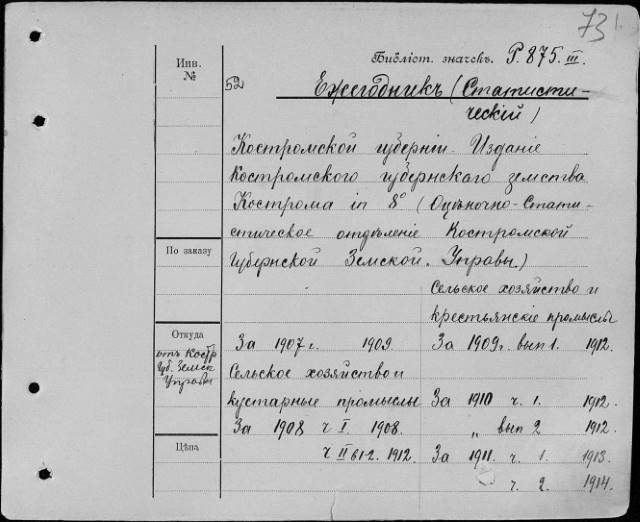 731.
Инв. №
Библіот. значекъ. P. 875. III.
52
Ежегодникъ (Статисти-
ческій)
Костромской губерніи. Изданіе
Костромского губернскаго земства
Кострома in 8° (Оцѣночно-Стати-
стическое отдѣленіе Костромской
Губернской Земской Управы)
По заказу
Сельское хозяйство и
крестьянскіе промыслы
Откуда
отъ Костр.
Губ. Земск
Управы
За 1907 г. 1909. За 1909 г. вып 1. 1912.
Сельское хозяйство и
кустарные промыслы За 1910 ч. 1. 1912.
За 1908 ч I. 1908. „ вып 2 1912.
Цѣна
ч II в 1-2. 1912. За 1911. ч. 1. 1913.
ч. 2. 1914.